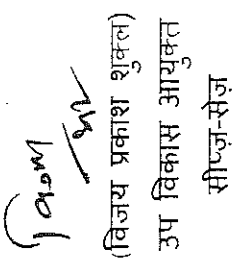 (विजय प्रकाश शुक्ल)
उप विकास आयुक्त
सीप्ज़-सेज़